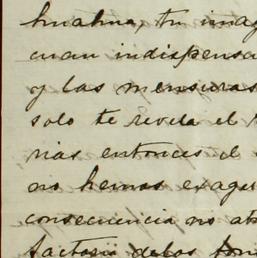 huahua, tu imag
cuan indispensa
y las mensuras
solo te revela el
rias entonces el
no hemos exager
consecuencia no ab
factorio de los fon